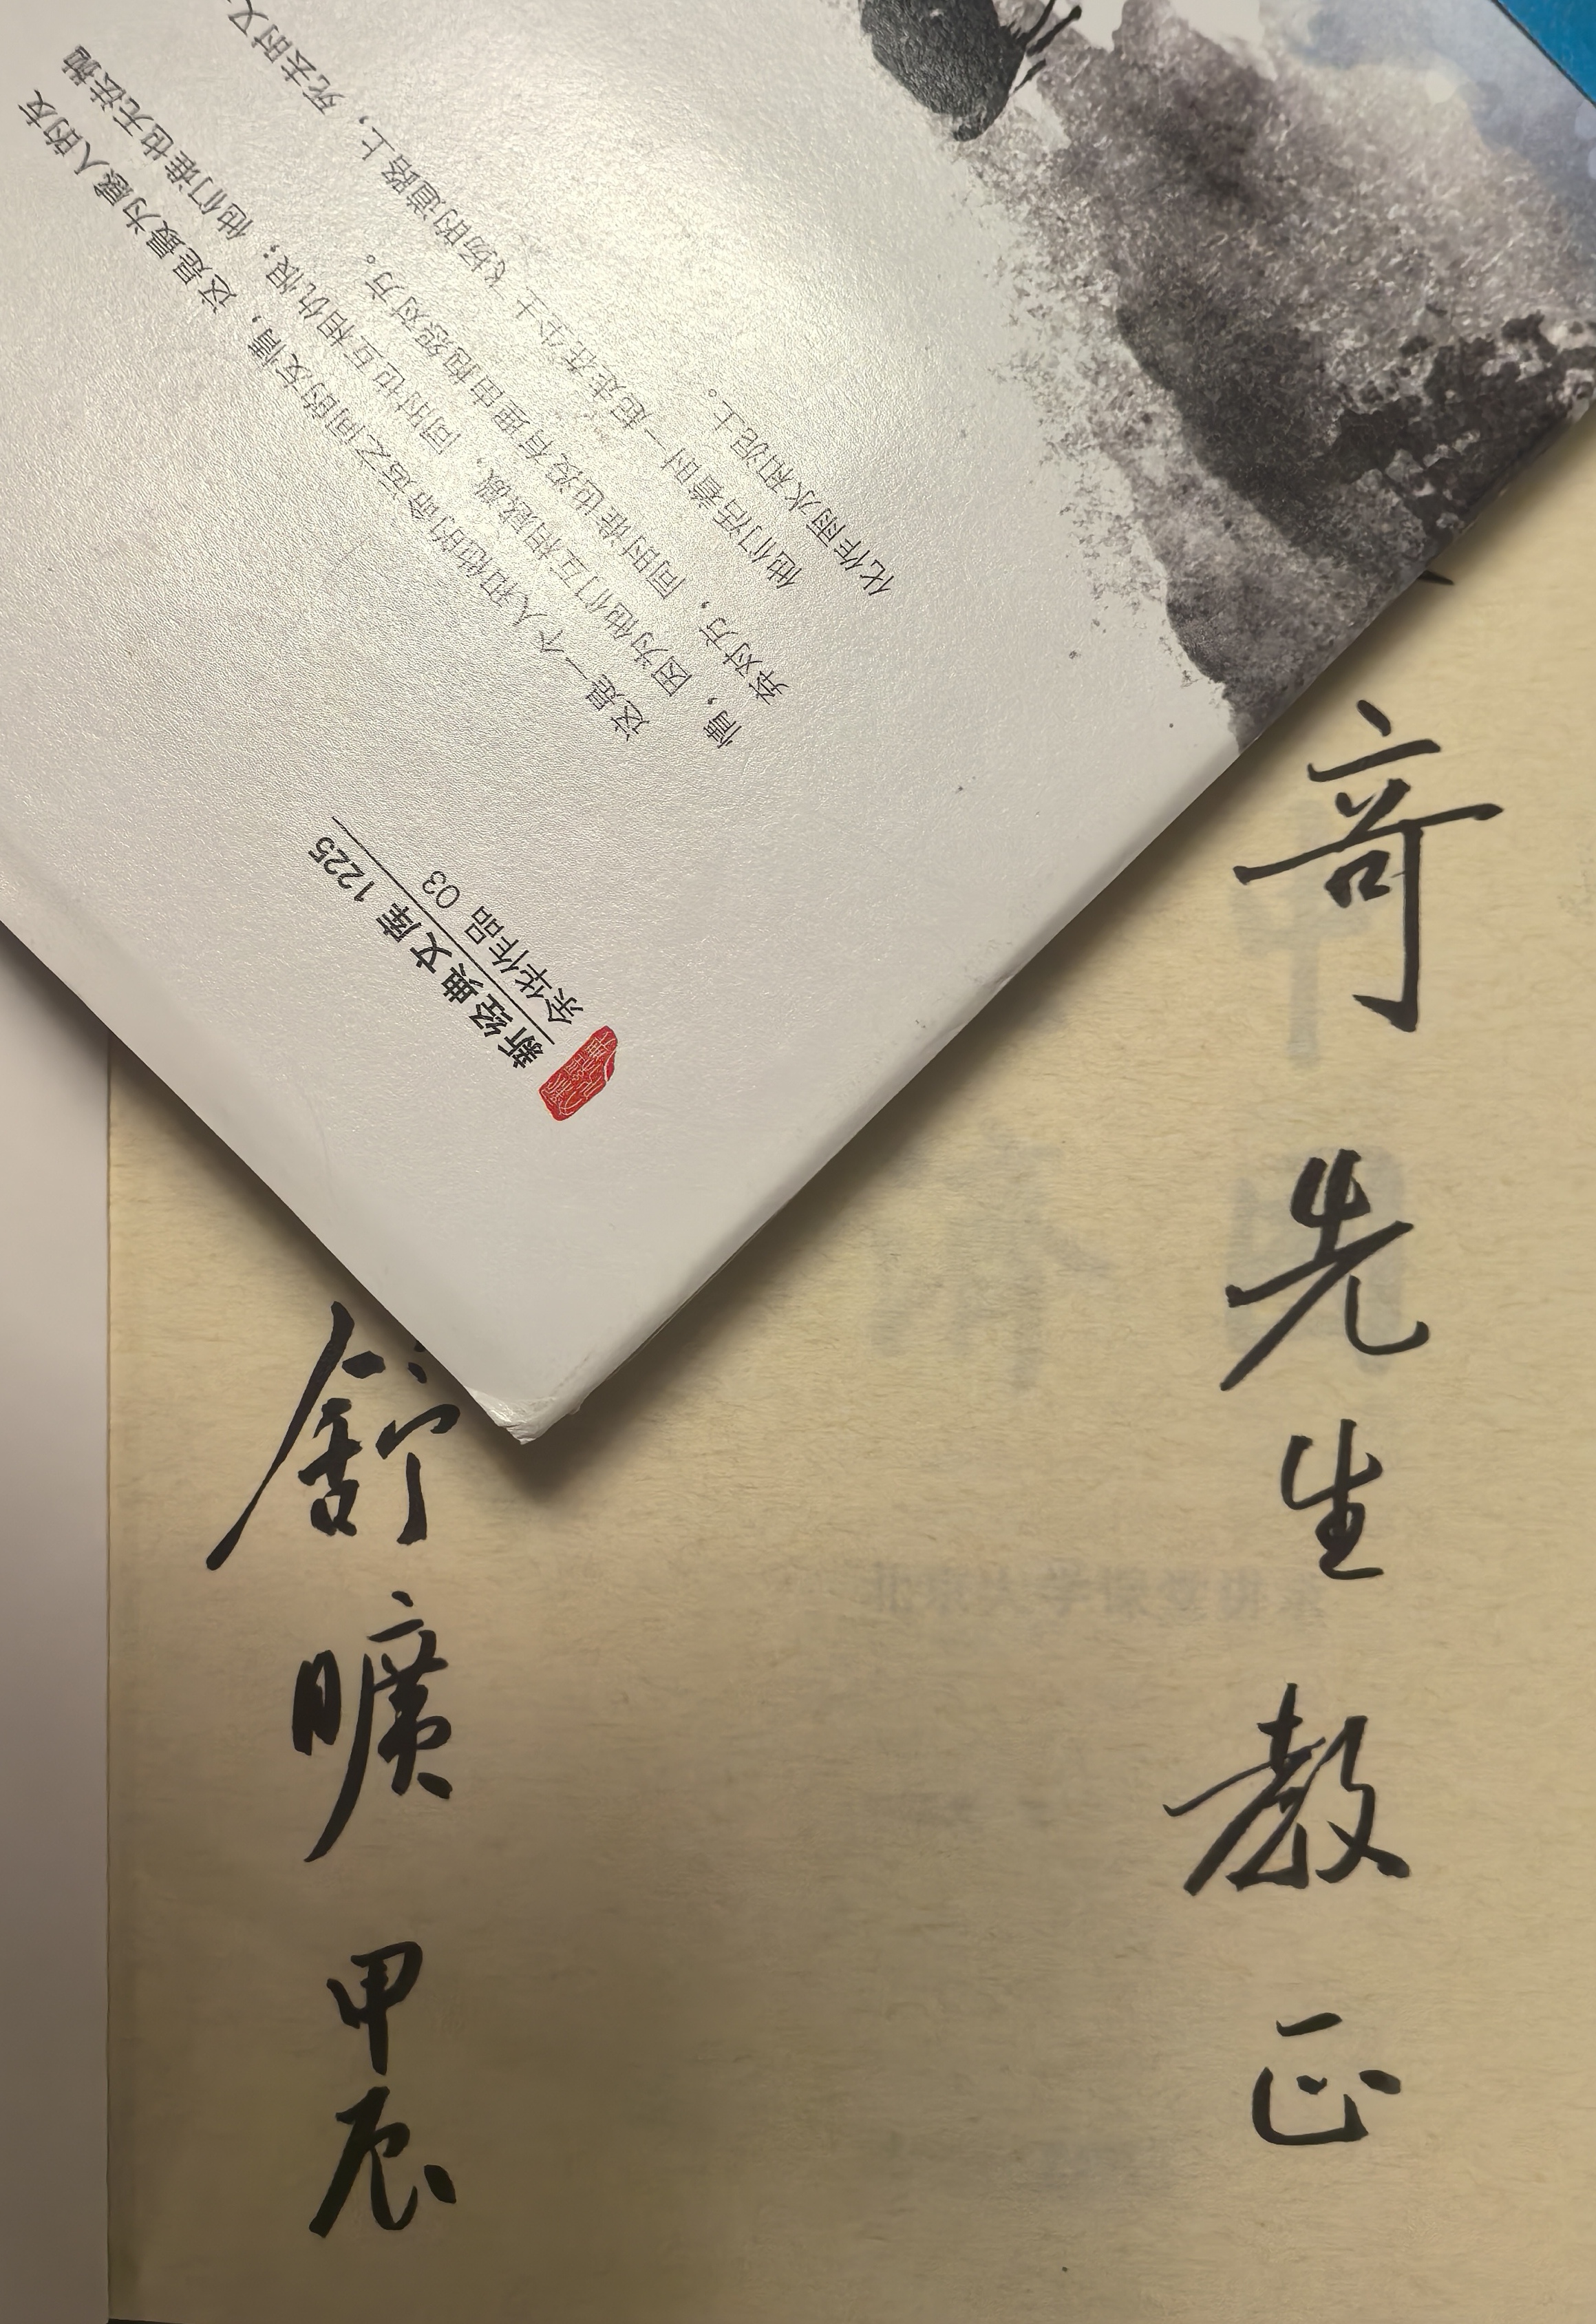 这是一个人和他的命运之间的友情，这是最为感人的友
情，因为他们互相感激，同时也互相仇恨；他们谁也无法抛
弃对方，同时谁也没有理由抱怨对方。
他们活着时一起走在尘土飞扬的道路上，死去时又
化作雨水和泥土。
新经典文库 1225
余华作品 03
奇先生教正
舒曠
甲辰
北京大学课堂讲录